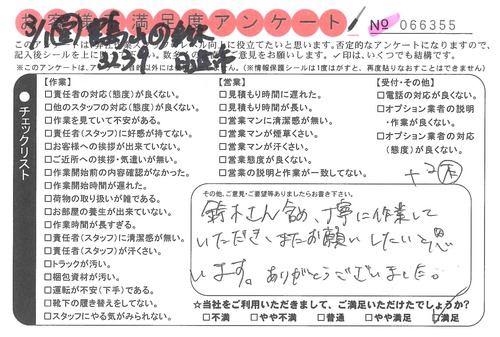 お客様満足度アンケート
№ 066355
ご意見をお願いします。✓印は、いくつでも結構です。
【作業】
□責任者の対応(態度)が良くない。
□他のスタッフの対応(態度)が良くない。
□作業を見ていて不安がある。
□責任者(スタッフ)に好感が持てない。
□お客様への挨拶が出来ていない。
□ご近所への挨拶・気遣いが無い。
□作業開始前の内容確認がなかった。
□作業開始時間が遅れた。
□荷物の取り扱いが雑である。
□お部屋の養生が出来ていない。
□作業時間が長すぎる。
□責任者(スタッフ)に清潔感が無い。
□責任者(スタッフ)が汗くさい。
□トラックが汚い。
□梱包資材が汚い。
□運転が不安(下手)である。
□靴下の履き替えをしてない。
□スタッフにやる気がみられない。
【営業】
□見積もり時間に遅れた。
□見積もり時間が長い。
□営業マンに清潔感が無い。
□営業マンが煙草くさい。
□営業マンが汗くさい。
□営業態度が良くない。
□営業の説明と作業が一致してない。
【受付・その他】
□電話の対応が良くない。
□オプション業者の説明
・作業が良くない。
□オプション業者の対応
(態度)が良くない。
チェックリスト
その他、ご意見・ご要望等ありましたらお書き下さい。
鈴木さん含め、丁寧に作業して
いただき、またお願いしたいと思
います。ありがとうございました。
☆当社をご利用いただきまして、ご満足いただけたでしょうか?
□不満 □やや不満 □普通 □やや満足 ☑満足